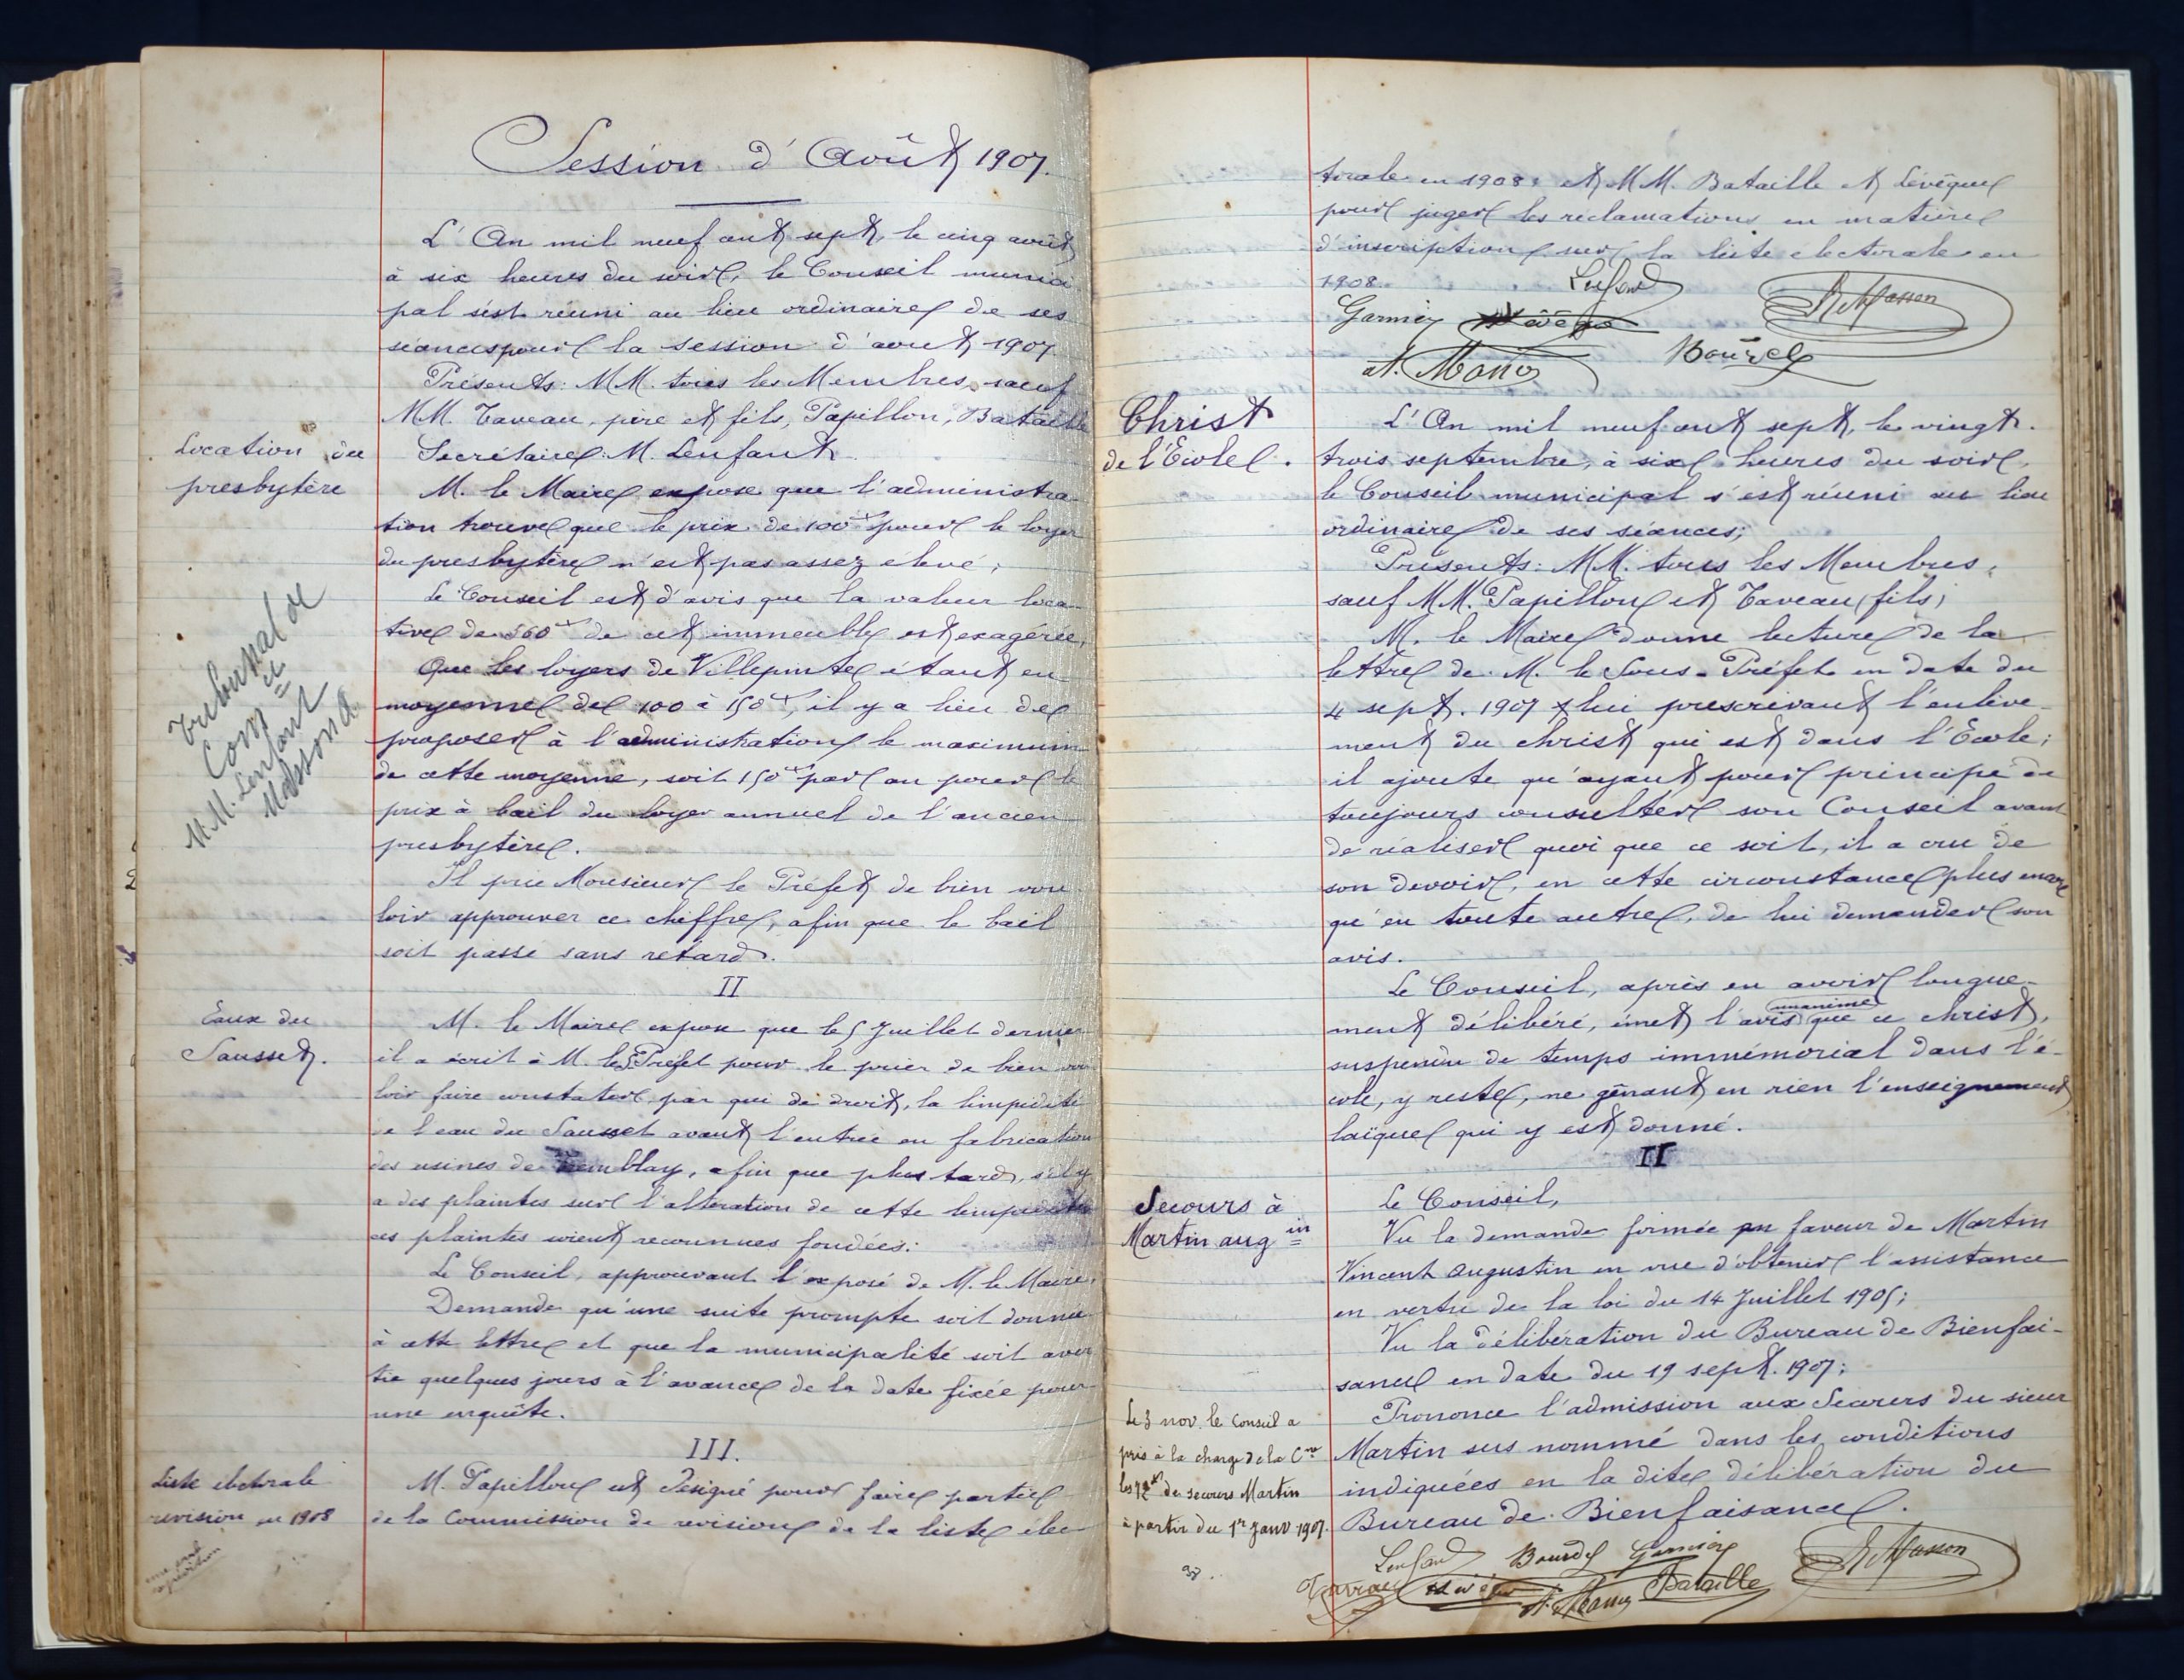 Session d'Août 1907.
L'An mil neuf cent sept, le cinq août
à six heures du soir, le Conseil munici
pal s'est réuni au lieu ordinaire de ses
séances pour la session d'août 1907
Présents: MM. tous les Membres, sauf
MM. Taveau, père et fils, Papillon, Bataille
Secrétaire: M. Lenfant
Location du
presbytère
M. le Maire expose que l'administra
tion trouve que le prix de 100 f pour le loyer
du presbytère n'est pas assez élevé;
Le Conseil est d'avis que la valeur loca
tive de 360 f de cet immeuble est exagérée,
Que les loyers de Villepinte étant en
moyenne de 100 à 150 f, il y a lieu de
proposer à l'administration le maximum
de cette moyenne, soit 150 f par an pour le
prix à bail du loyer annuel de l'ancien
presbytère.
Il prie Monsieur le Préfet de bien vou
loir approuver ce chiffre, afin que le bail
soit passé sans retard.
Tribunal de
Com ce
MM. Lenfant
Masson A
II
Eaux du
Sausset.
M. le Maire expose que le 5 Juillet dernier
il a écrit à M. le S. Préfet pour le prier de bien vou
loir faire constater, par qui de droit, la limpidité
de l'eau du Sausset avant l'entrée en fabrication
des usines de Tremblay, afin que plus tard, s'il y
a des plaintes sur l'altération de cette limpidité
ces plaintes soient reconnues fondées:
Le Conseil, approuvant l'exposé de M. le Maire,
Demande qu'une suite prompte soit donnée
à cette lettre et que la municipalité soit aver
tie quelques jours à l'avance de la date fixée pour
une enquête.
III.
Liste électorale
revision en 1908
M. Papillon est désigné pour faire partie
de la Commission de revision de la liste élec
torale en 1908; et MM. Bataille et Lévêque
pour juger les réclamations en matière
d'inscription sur la liste électorale en
1908.
Lenfant
Masson
Garnier Lévêque
Bourdel
Christ
de l'Ecole.
L'An mil neuf cent sept, le vingt.
trois septembre, à six heures du soir,
le Conseil municipal s'est réuni au lieu
ordinaire de ses séances;
Présents: MM. tous les Membres,
sauf MM. Papillon et Taveau, fils;
M. le Maire donne lecture de la
lettre de M. le Sous-Préfet en date du
4 sept. 1907 lui prescrivant l'enlève-
ment du christ qui est dans l'Ecole;
il ajoute qu'ayant pour principe de
toujours consulter son Conseil avant
de réaliser quoi que ce soit, il a cru de
son devoir, en cette circonstance plus encore
qu'en toute autre, de lui demander son
avis.
Le Conseil, après en avoir longue-
ment délibéré, émet l'avis unanime que ce christ,
suspendu de temps immémorial dans l'é-
cole, y reste, ne gênant en rien l'enseignement
laïque qui y est donné.
II
Secours à
Martin aug in
Le Conseil,
Vu la demande formée en faveur de Martin
Vincent Augustin en vue d'obtenir l'assistance
en vertu de la loi du 14 Juillet 1905;
Vu la délibération du Bureau de Bienfai-
sance en date du 19 sept. 1907;
Prononce l'admission aux Secours du sieur
Martin sus nommé dans les conditions
indiquées en la dite délibération du
Bureau de Bienfaisance.
Le 3 nov. le Conseil a
pris à la charge de la Cne
les 12 f de secours Martin
à partir du 1er Janv 1907.
Lenfant Bourdel Garnier
Masson
Lévêque
Bataille